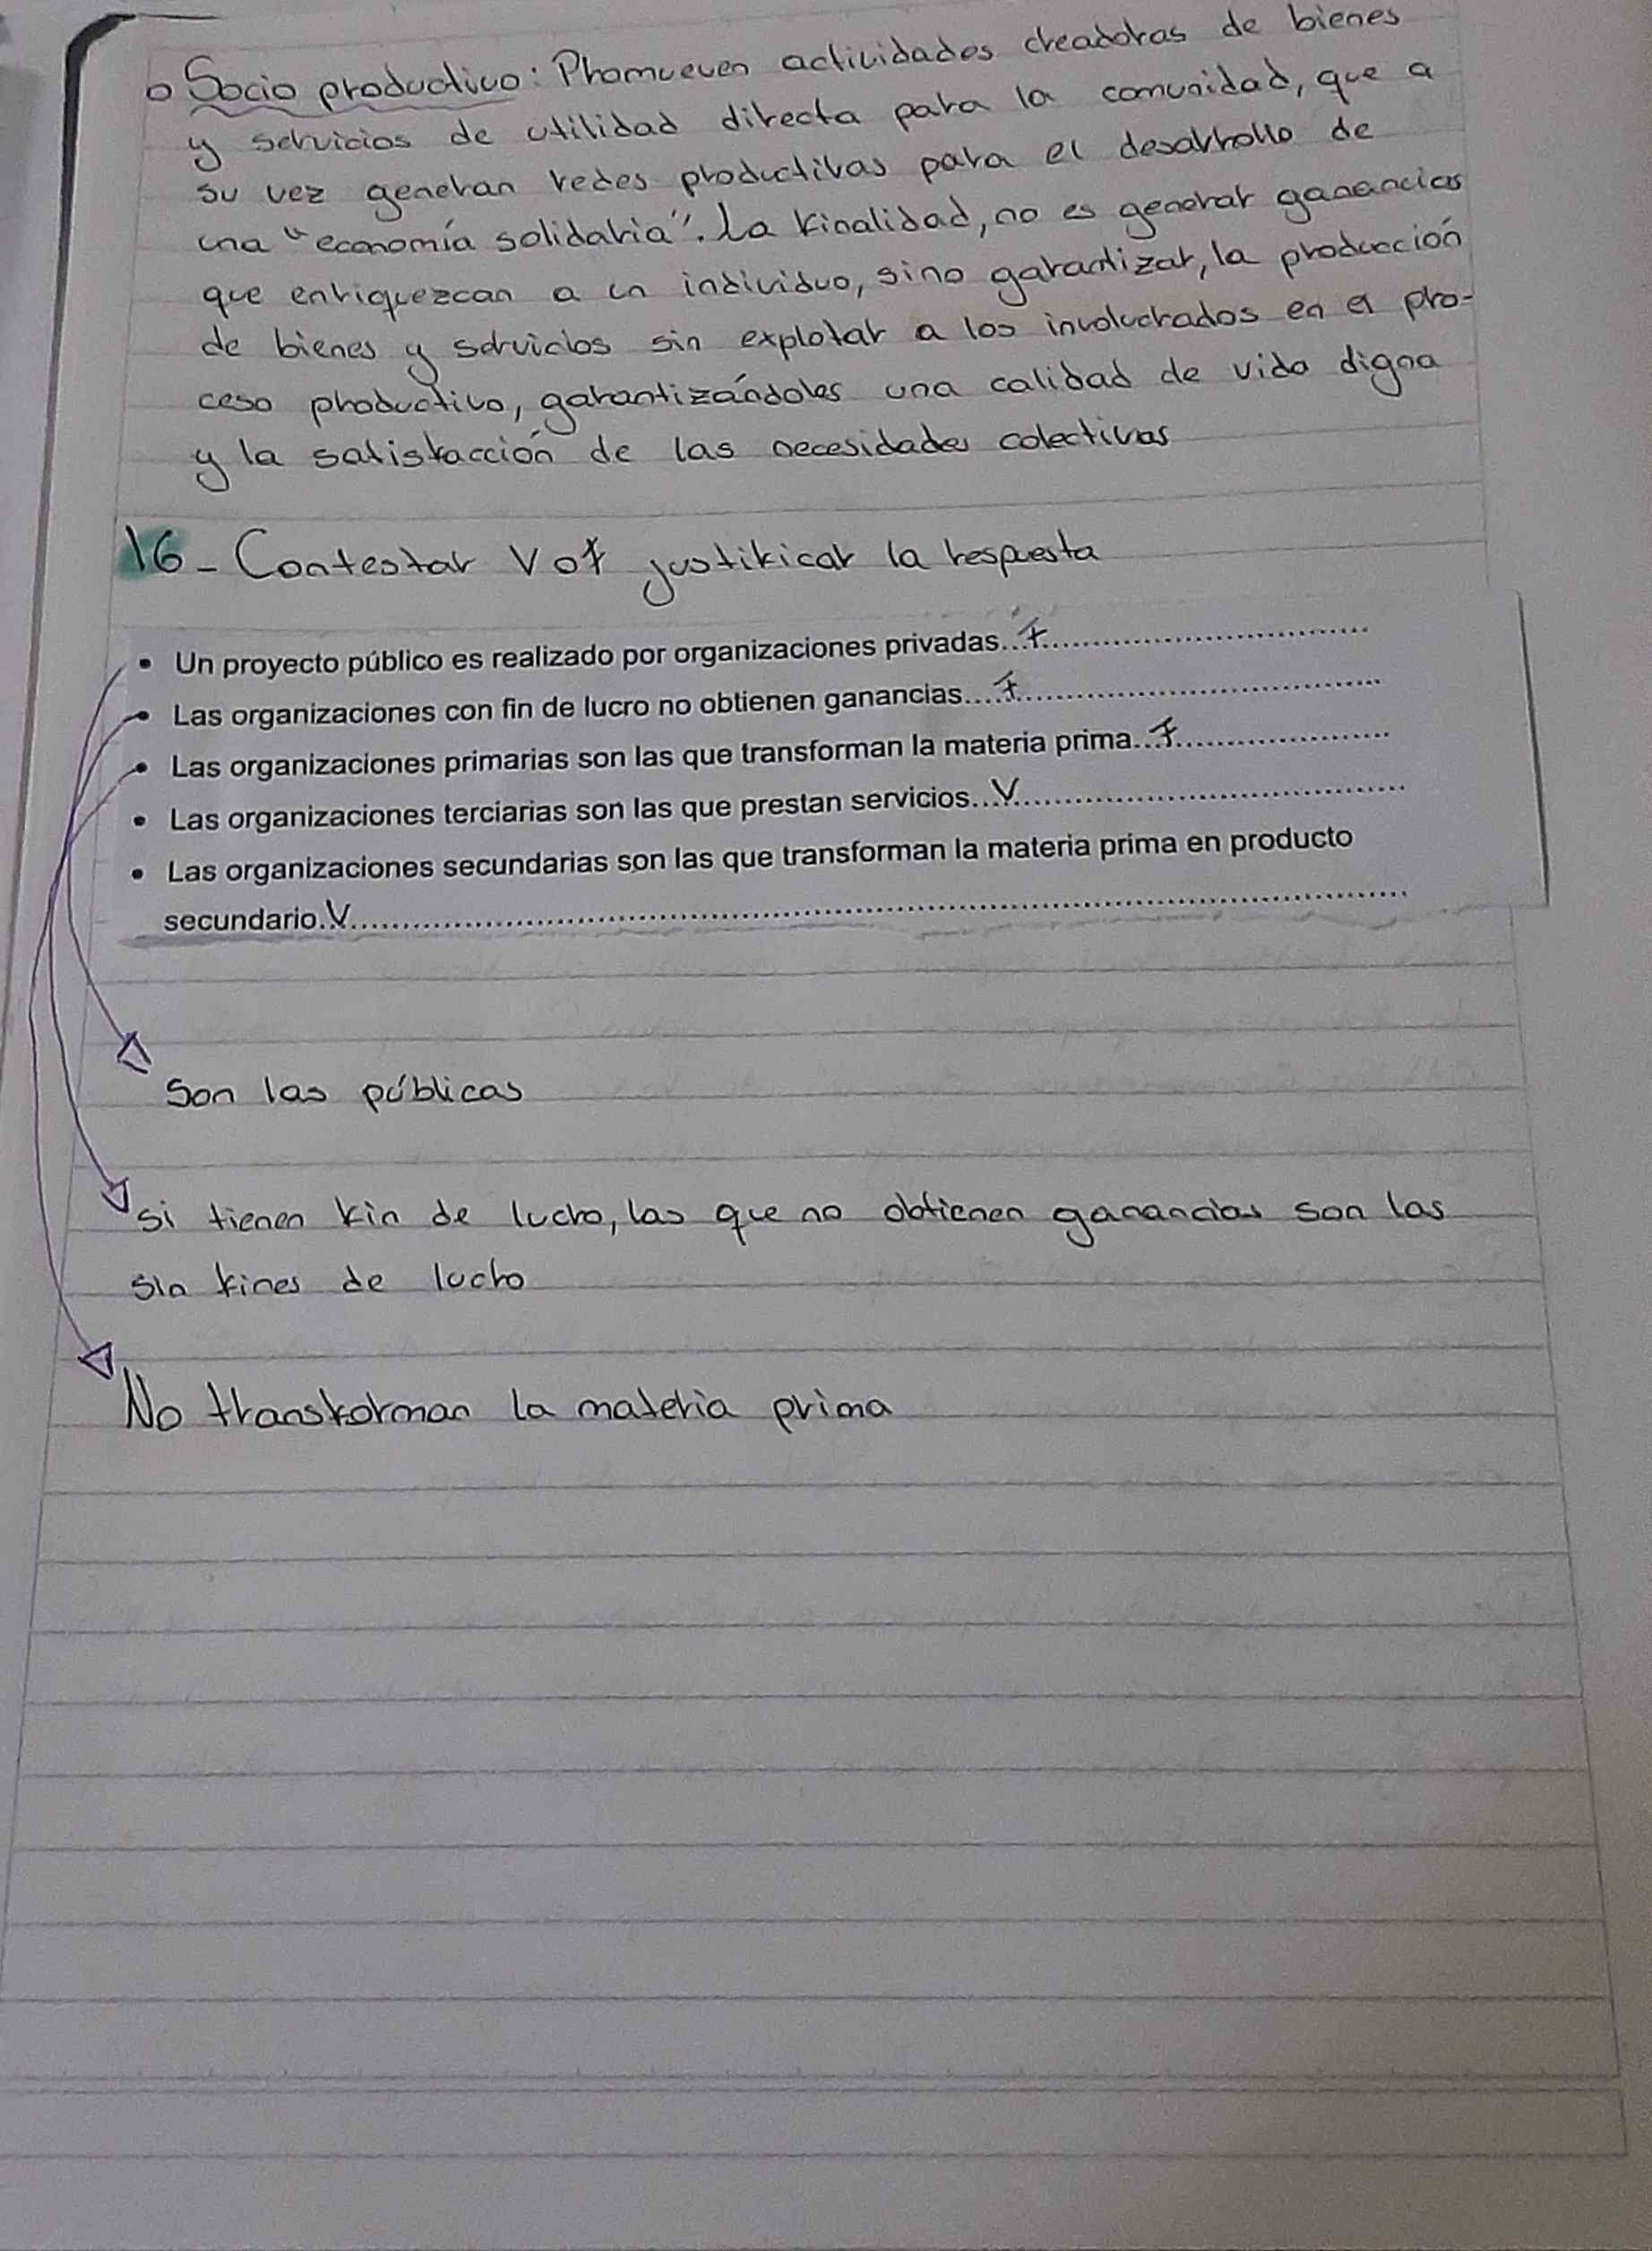 o Socio productivo: Promueven actividades creadoras de bienes
y servicios de utilidad directa para la comunidad, que a
su vez generan redes productivas para el desarrollo de
una "economía solidaria". La finalidad, no es generar ganancias
que enriquezcan a un individuo, sino garantizar, la producción
de bienes y servicios sin explotar a los involucrados en el pro-
ceso productivo, garantizándoles una calidad de vida digna
y la satisfacción de las necesidades colectivas
16- Contestar V o f justificar la respuesta
• Un proyecto público es realizado por organizaciones privadas...f...
• Las organizaciones con fin de lucro no obtienen ganancias....f...
• Las organizaciones primarias son las que transforman la materia prima...f...
• Las organizaciones terciarias son las que prestan servicios...V...
• Las organizaciones secundarias son las que transforman la materia prima en producto
secundario..V...
Son las públicas
si tienen fin de lucro, las que no obtienen ganancias son las
sin fines de lucro
No transforman la materia prima